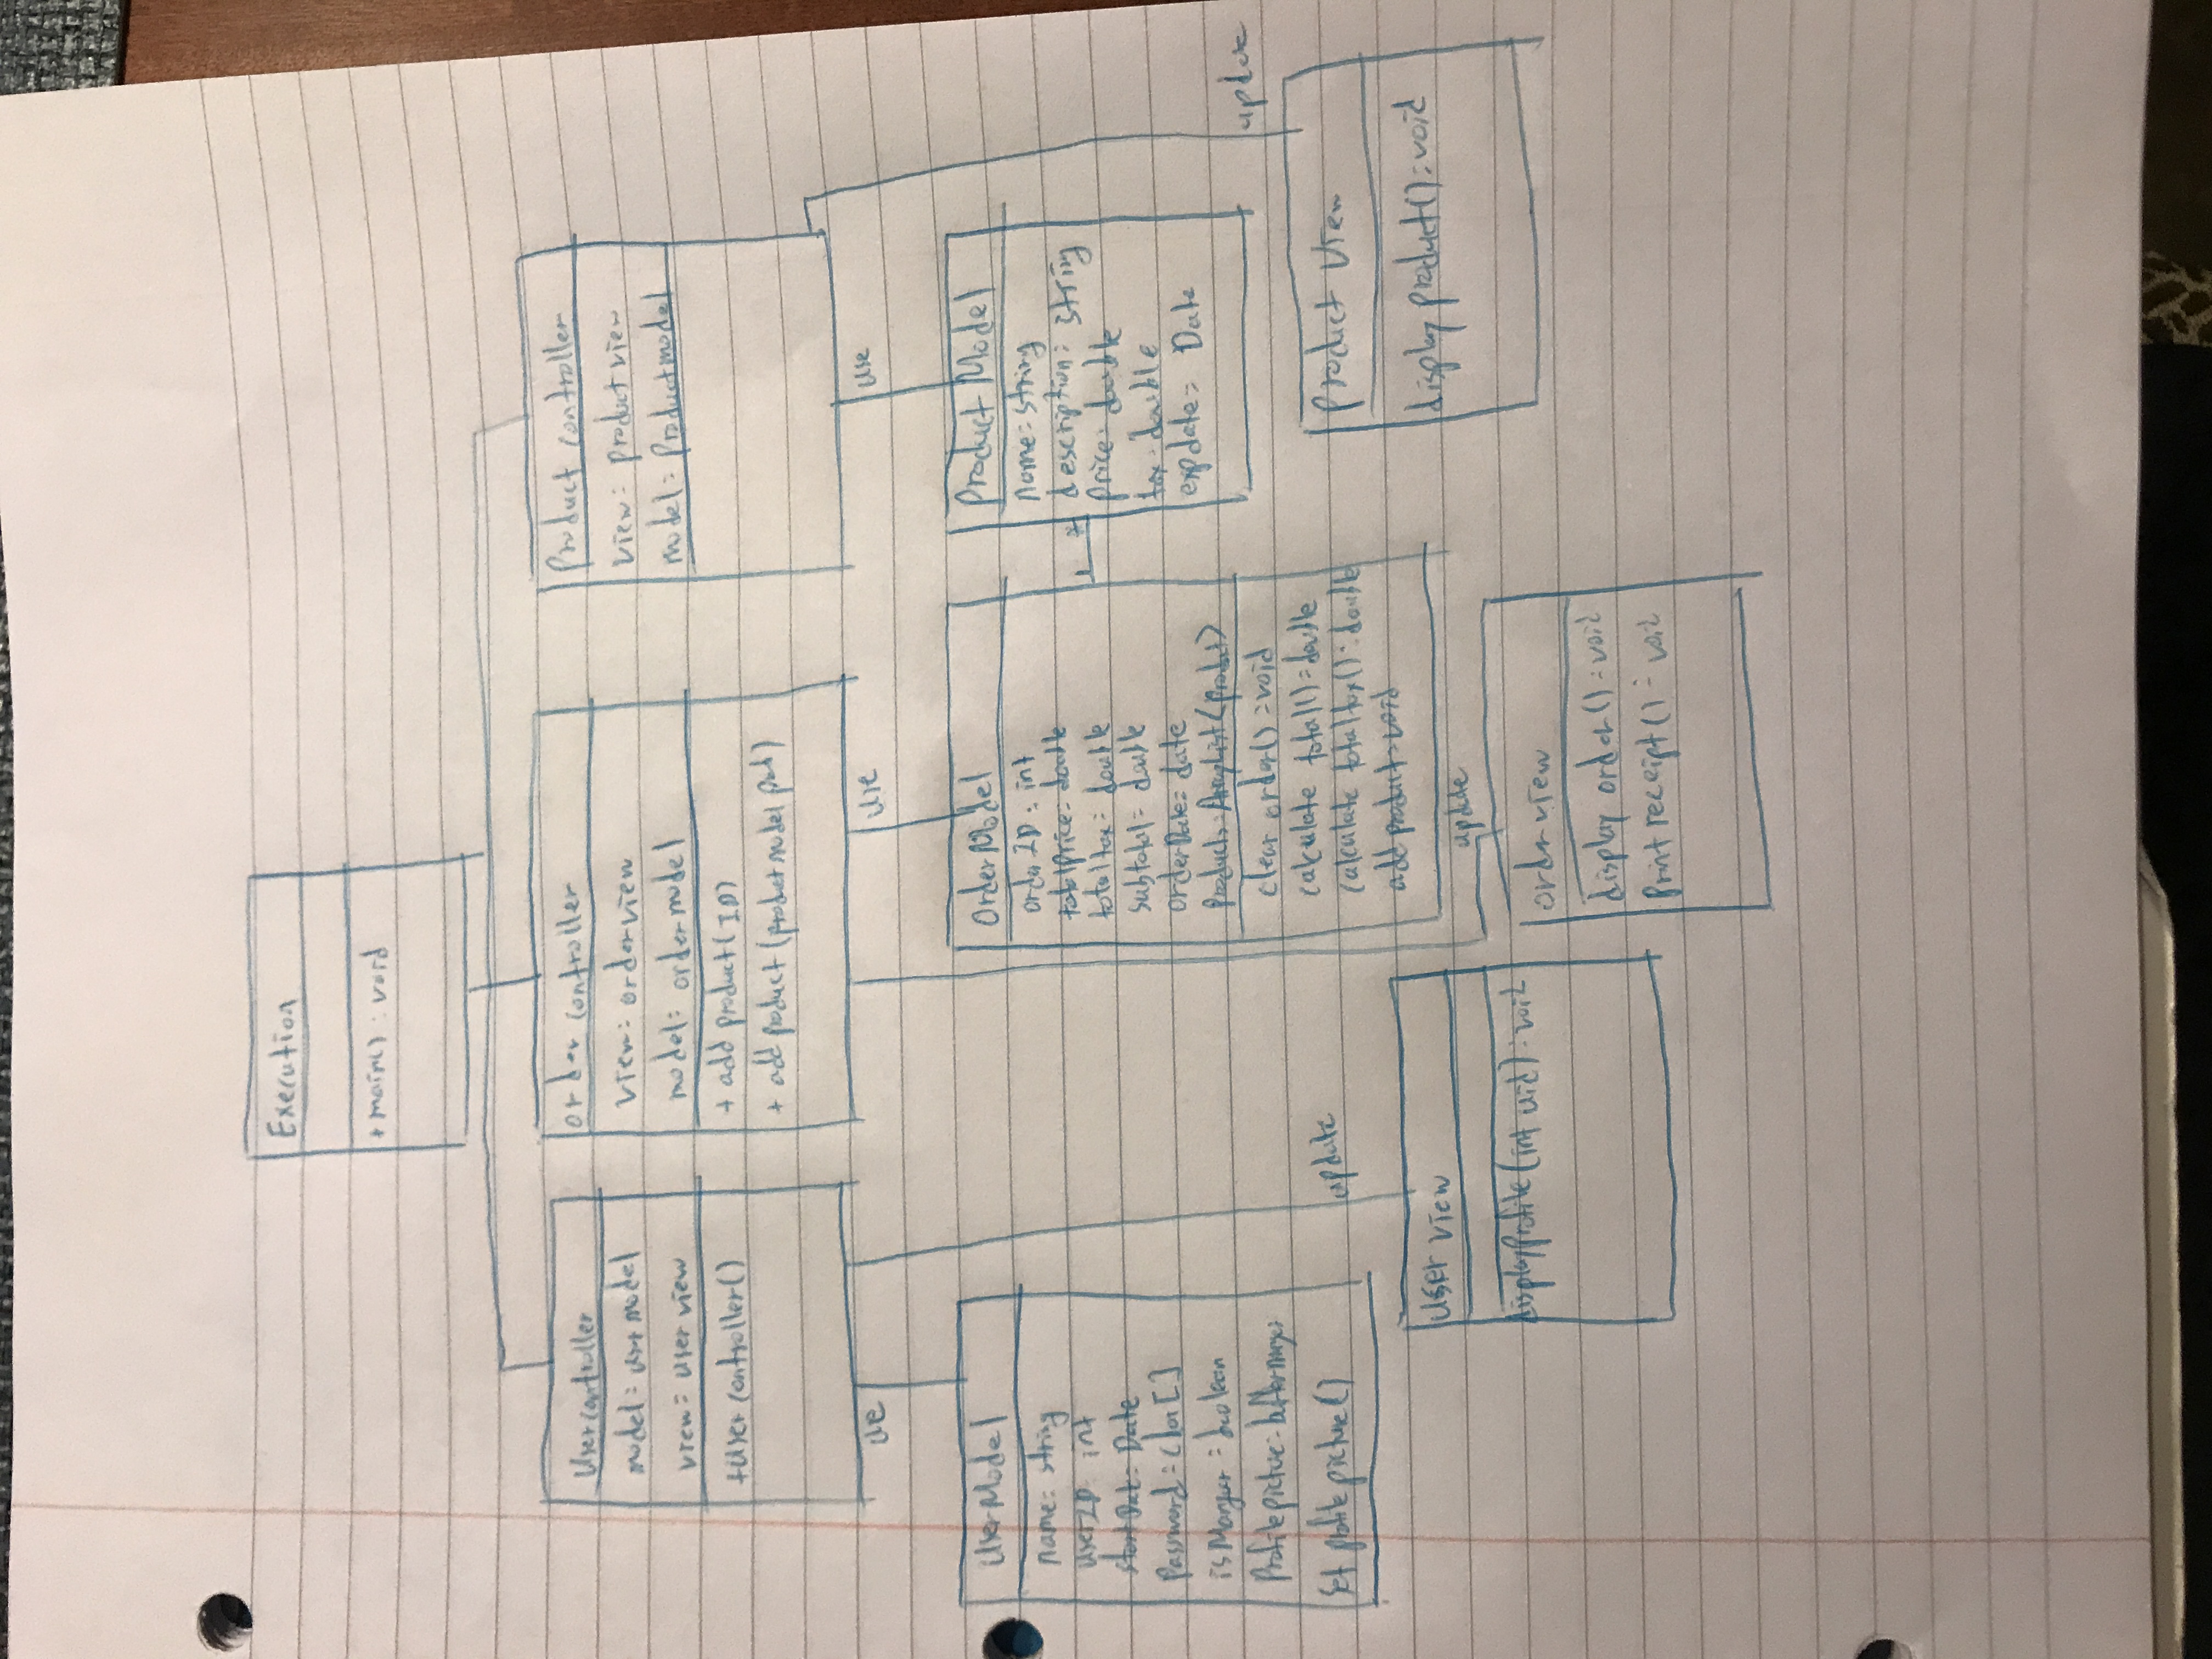 Execution
+ main() : void
Usercontroller
model: user model
view: user view
+User controller()
order controller
view: orderview
model: order model
+ add product (ID)
+ add product (product model prod)
Product controller
view: product view
model: Product model
use
use
UserModel
name: string
userID int
startDate: Date
Password: char[]
isManger: boolean
Profile picture:
Set profile picture()
OrderModel
order ID: int
totalprice: double
totaltax: double
subtotal: double
orderDate: date
products: ArrayList<product>
clear order() : void
calculate total() : double
calculate totaltax() : double
add product : void
1 *
Product Model
name: string
description: string
price: double
tax: double
expdate: Date
update
update
update
user view
displayprofile (int uid) : void
order view
display order() : void
Print receipt() : void
Product View
display product() : void